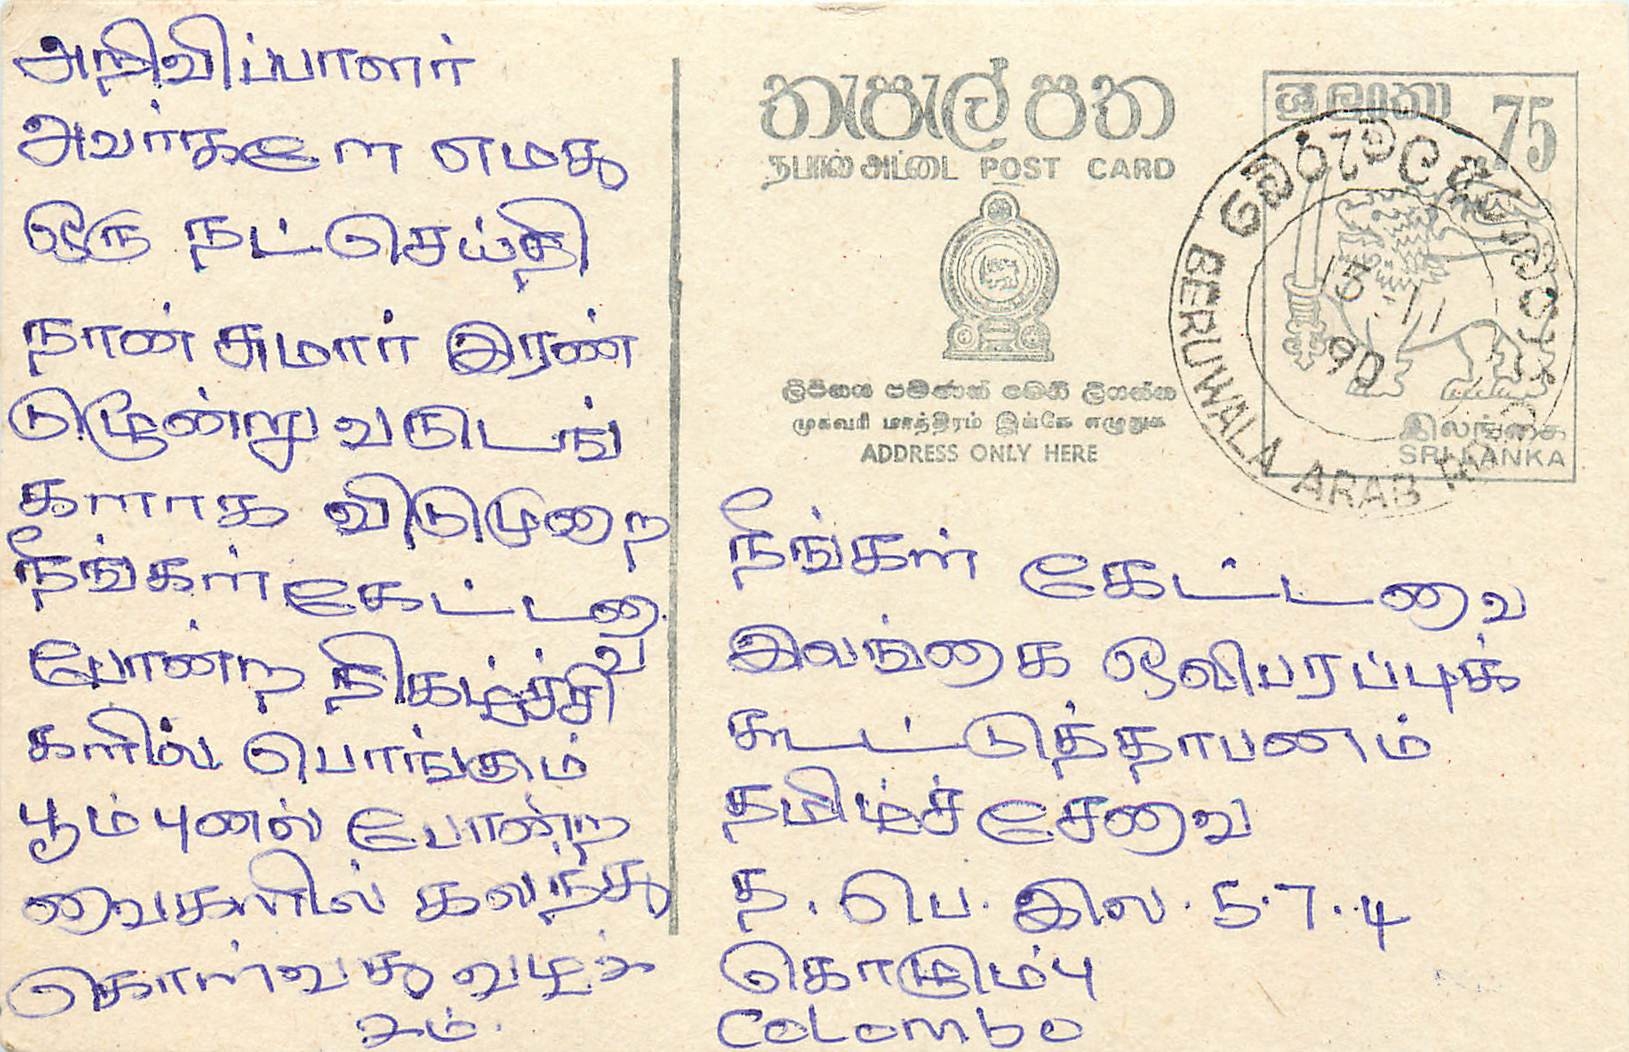 அறிவிப்பாளர்
அவர்களே எமது
ஒரு நட்செய்தி
நான் சுமார் இரண்
டுமூன்று வருடங்
களாக விடுமுறை
நீங்கள் கேட்டவை
போன்ற நிகழ்ச்சி
களில் பொங்கும்
பூம்புனல் போன்ற
வைகளில் கலந்து
கொள்வது வழக்
கம்.
තැපැල් පත
தபால் அட்டை POST CARD
ලිපිනය පමණක් මෙහි ලියන්න
முகவரி மாத்திரம் இங்கே எழுதுக
ADDRESS ONLY HERE
ශ්‍රී ලංකා 75
இலங்கை
SRI LANKA
BERUWALA ARAB
13-11
90
நீங்கள் கேட்டவை
இலங்கை ஒலிபரப்புக்
கூட்டுத்தாபனம்
தமிழ்ச் சேவை
த. பெ. இல. 5.7.4
கொழும்பு
Colombo